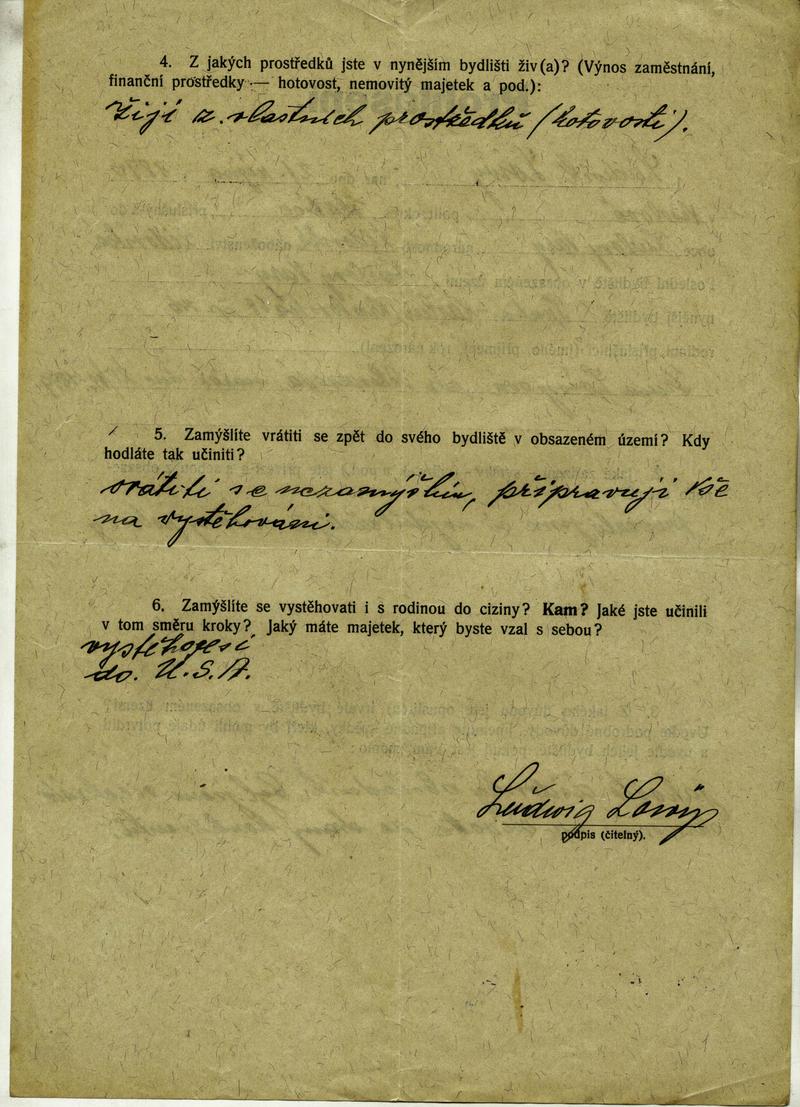 4. Z jakých prostředků jste v nynějším bydlišti živ(a)? (Výnos zaměstnání,
finanční prostředky — hotovost, nemovitý majetek a pod.):
Žiji z vlastních prostředků (hotovosti).
5. Zamýšlíte vrátiti se zpět do svého bydliště v obsazeném území? Kdy
hodláte tak učiniti?
vrátiti se nezamýšlím, připravuji se
na vystěhování.
6. Zamýšlíte se vystěhovati i s rodinou do ciziny? Kam? Jaké jste učinili
v tom směru kroky? Jaký máte majetek, který byste vzal s sebou?
do U.S.A.
Ludwig
podpis (čitelný).